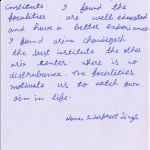 institute I found the
faculities are well educated
and have a better experience
I found arima chandigarh
the best institute the other
aris center. where is no
distrubance. The faculities
motivate us to catch own
aim in life.
Name S. Jaspreet Singh